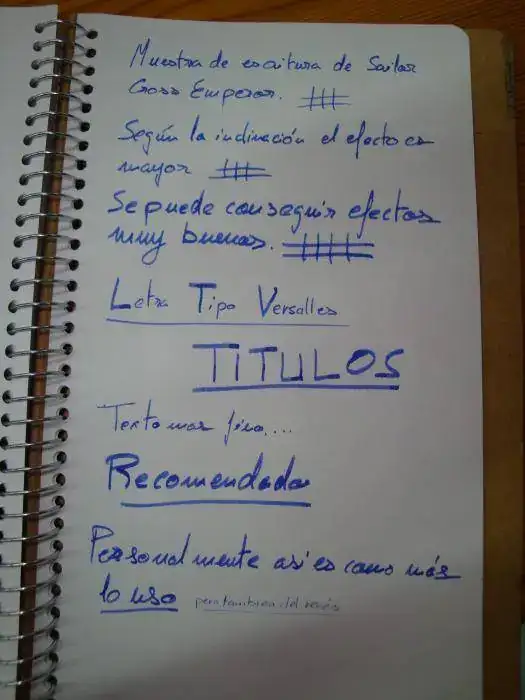 Muestra de escritura de Sailor
Cross Emperor.
Según la inclinación el efecto es
mayor
Se puede conseguir efectos
muy buenos.
Letra Tipo Versalles
TITULOS
Texto mas fino....
Recomendado
Personalmente así es como más
lo uso pero tambien del revés